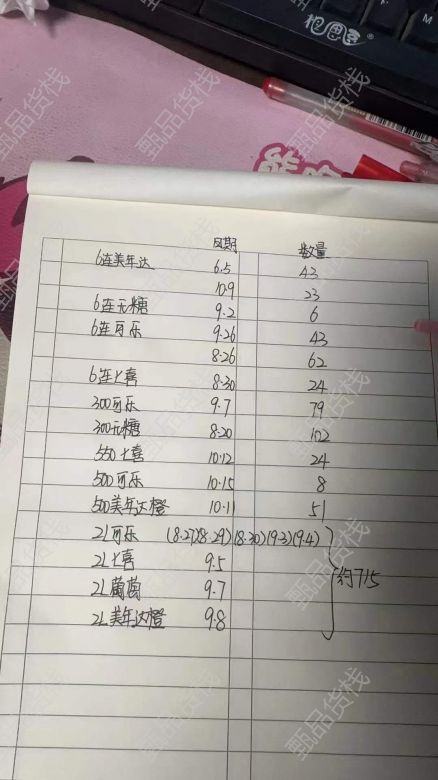 日期 数量
6连美年达 6.5 43
10.9 23
6连无糖 9.2 6
6连可乐 9.26 43
8.26 62
6连七喜 8.30 24
300可乐 9.7 79
300无糖 8.20 102
550七喜 10.12 24
500可乐 10.15 8
500美年达橙 10.11 51
2L可乐 (8.27)(8.29)(8.30)(9.3)(9.4)
2L七喜 9.5
2L葡萄 9.7
2L美年达橙 9.8
约715
甄品货栈